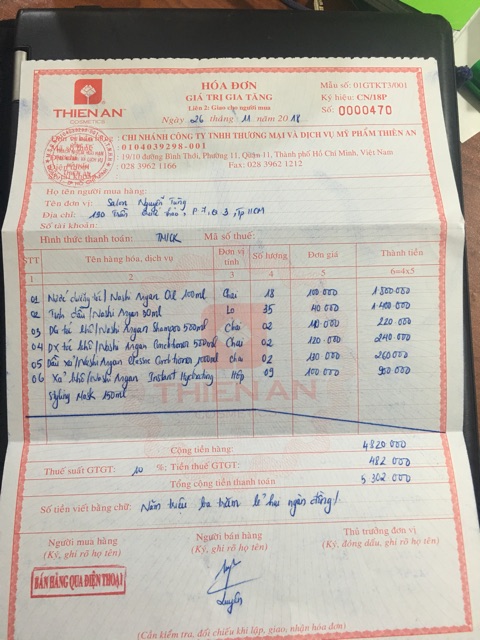 THIEN AN
COSMETICS
HÓA ĐƠN
GIÁ TRỊ GIA TĂNG
Liên 2: Giao cho người mua
Ngày 26 tháng 11 năm 2018
Mẫu số: 01GTKT3/001
Ký hiệu: CN/18P
Số: 0000470
Đơn vị bán hàng: CHI NHÁNH CÔNG TY TNHH THƯƠNG MẠI VÀ DỊCH VỤ MỸ PHẨM THIÊN AN
0104039298-001
19/10 đường Bình Thới, Phường 11, Quận 11, Thành phố Hồ Chí Minh, Việt Nam
028 3962 1166 Fax: 028 3962 1212
Họ tên người mua hàng:
Tên đơn vị: Salon Nguyễn Tùng
Địa chỉ: 190 Trần Quốc Thảo, P 7, Q 3, Tp HCM
Số tài khoản:
Hình thức thanh toán: TM/CK Mã số thuế:
STT Tên hàng hóa, dịch vụ Đơn vị tính Số lượng Đơn giá Thành tiền
1 2 3 4 5 6=4x5
01 Nước dưỡng tóc/Nashi Argan Oil 100ml Chai 18 100 000 1 800 000
02 Tinh dầu/Nashi Argan 80ml Lọ 35 40 000 1 400 000
03 Dầu Khô/Nashi Argan Shampoo 500ml Chai 02 110 000 220 000
04 Khô/Nashi Argan Conditioner 500ml Chai 02 120 000 240 000
05 Dầu xả/Nashi Argan Classic Conditioner 1000ml chai 02 130 000 260 000
06 Xả khô/Nashi Argan Instant Hydrating Hộp 09 100 000 900 000
Styling Mask 150ml
THIEN AN
Cộng tiền hàng: 4820 000
Thuế suất GTGT: 10 %; Tiền thuế GTGT: 482 000
Tổng cộng tiền thanh toán 5 302 000
Số tiền viết bằng chữ: Năm triệu ba trăm lẻ hai ngàn đồng!
Người mua hàng Người bán hàng Thủ trưởng đơn vị
(Ký, ghi rõ họ tên) (Ký, ghi rõ họ tên) (Ký, đóng dấu, ghi rõ họ tên)
BÁN HÀNG QUA ĐIỆN THOẠI
(Cần kiểm tra, đối chiếu khi lập, giao, nhận hóa đơn)